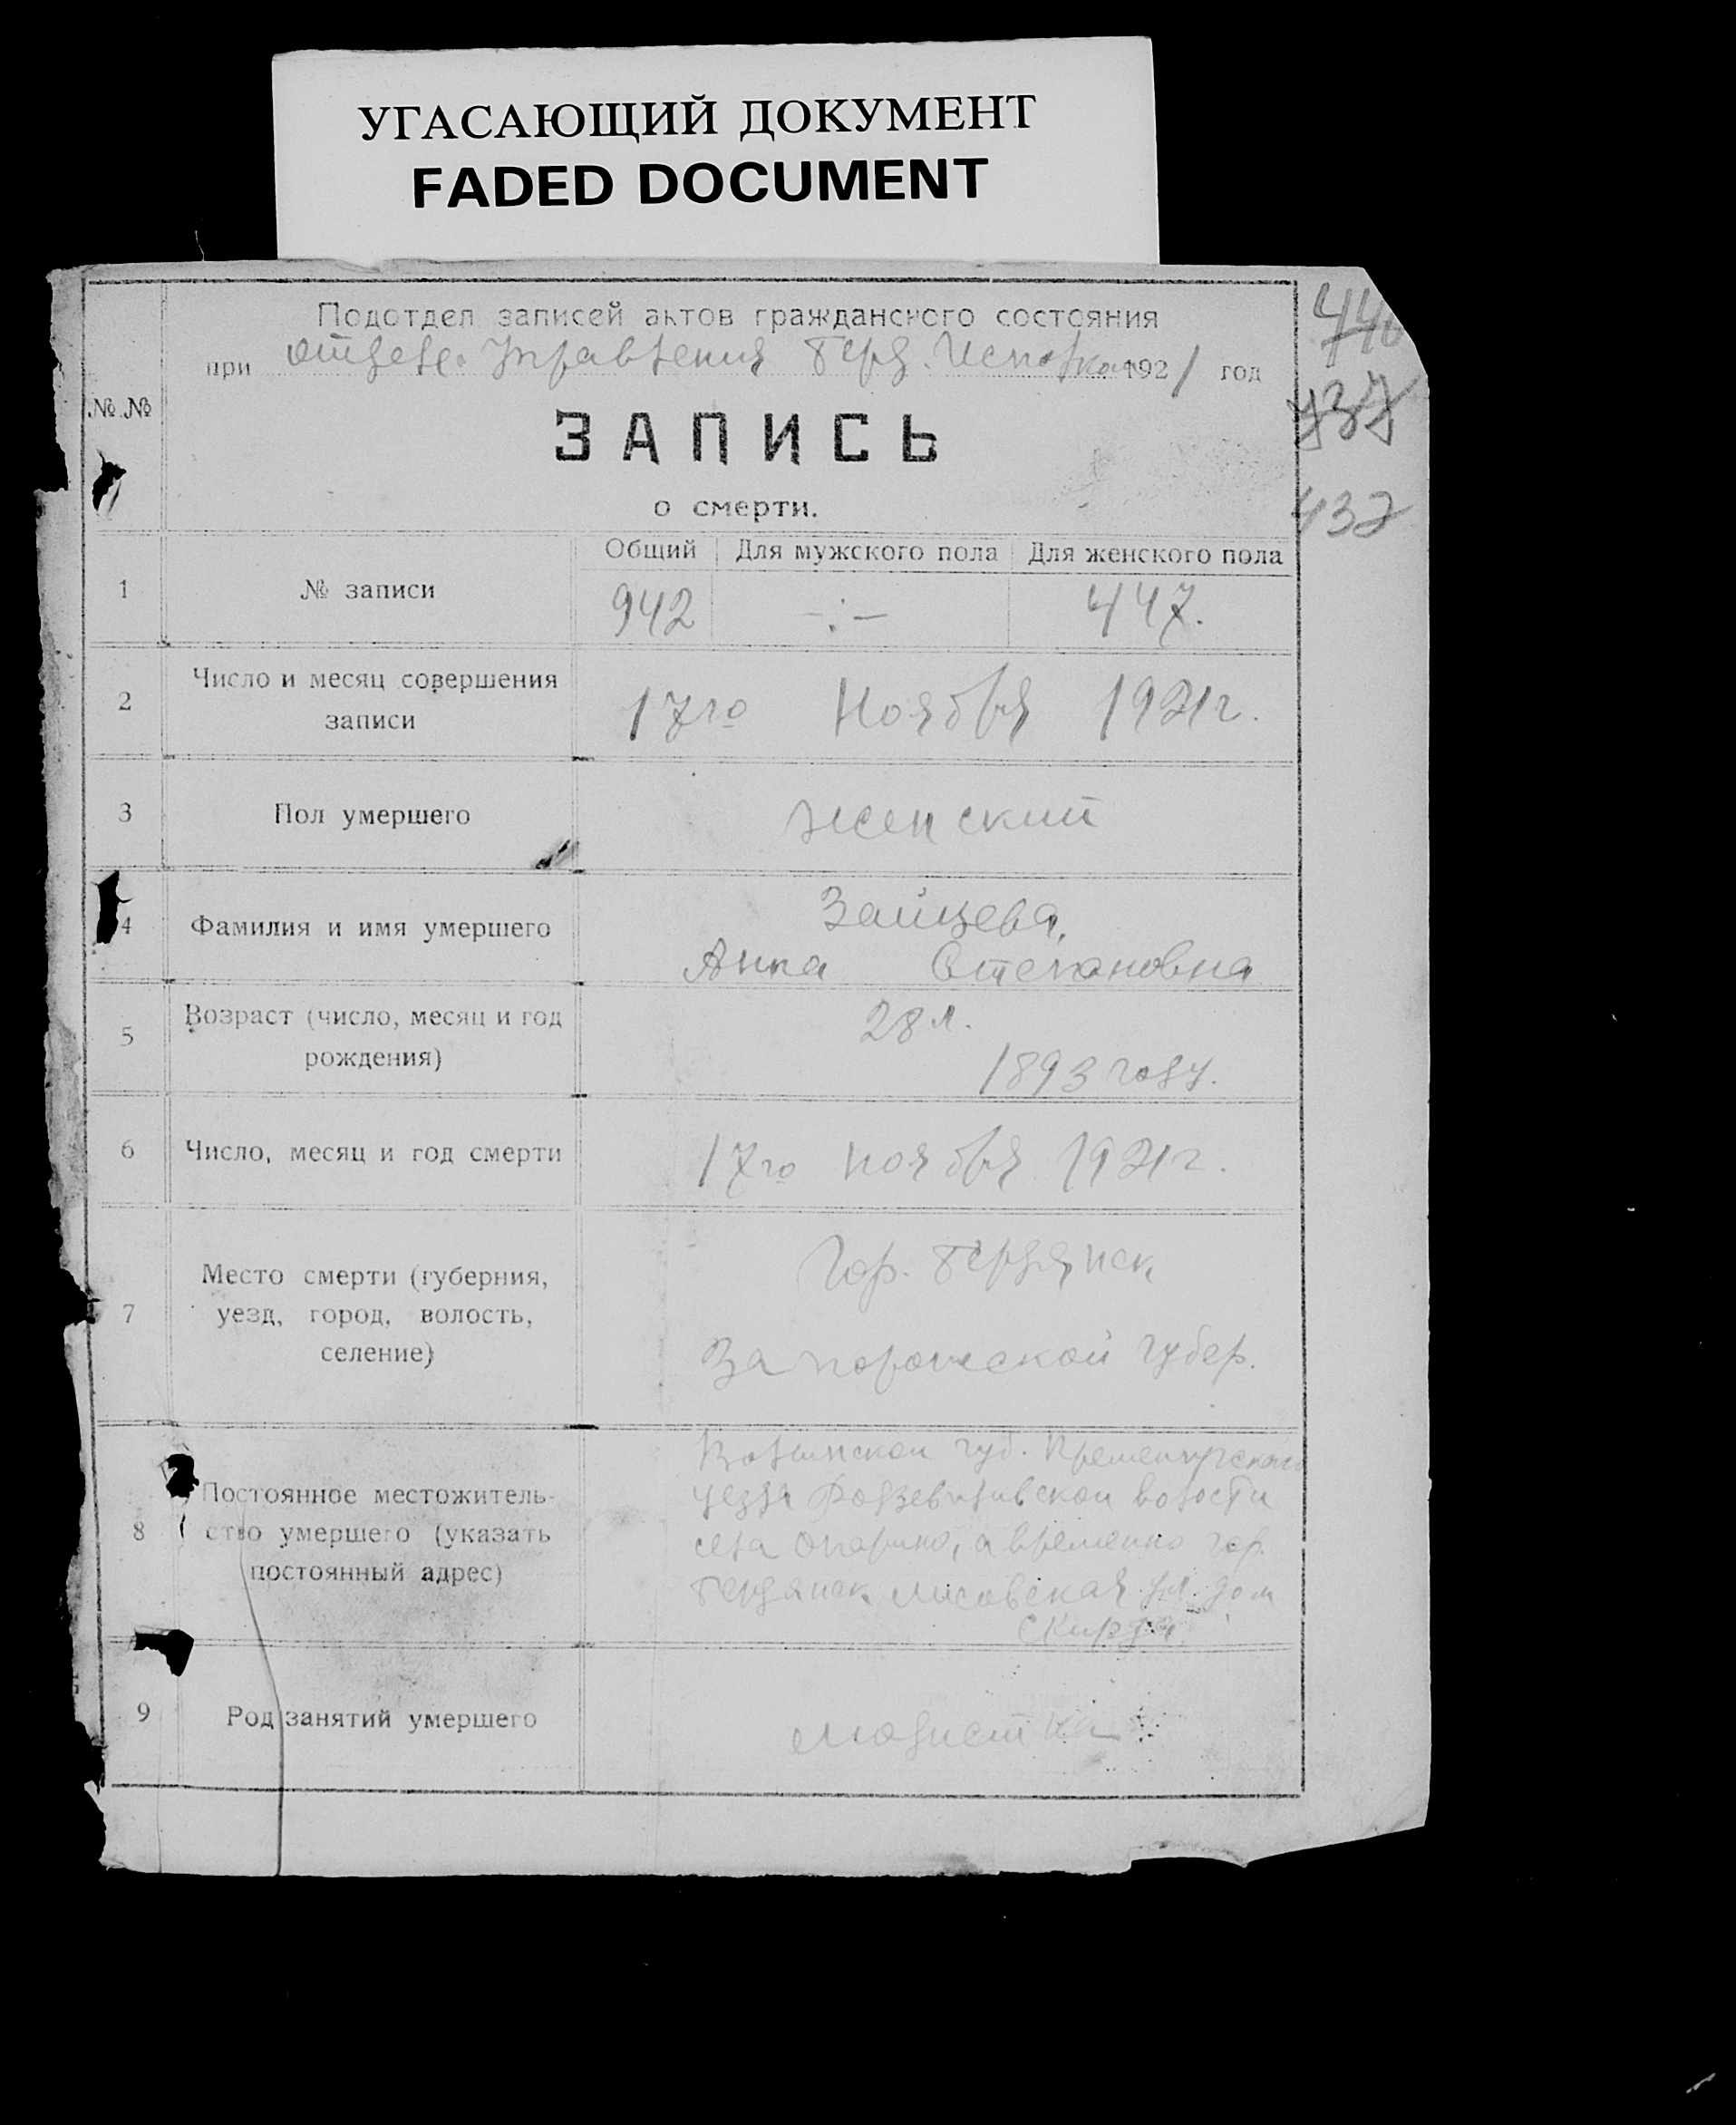 УГАСАЮЩИЙ ДОКУМЕНТ
FADED DOCUMENT
Подотдел записей актов гражданского состояния
при отделе Управления Берд. Исполкома 1921 год
№.№
ЗАПИСЬ
о смерти.
440
737
437
Общий Для мужского пола Для женского пола
1 № записи 942 -:- 447.
2 Число и месяц совершения
записи
17го Ноября 1921г.
3 Пол умершего женский
4 Фамилия и имя умершего
Зайцева,
Анна Степановна
5 Возраст (число, месяц и год
рождения)
28 л.
1893 году.
6 Число, месяц и год смерти 17го ноября 1921г.
7 Место смерти (губерния,
уезд, город, волость,
селение)
Гор. Бердянск
Запорожской губер.
8 Постоянное местожитель-
ство умершего (указать
постоянный адрес)
Волынской губ. Кременчугского
уезда волости
села Опарино, а временно гор.
Бердянск ул. дом
9 Род занятий умершего модистка